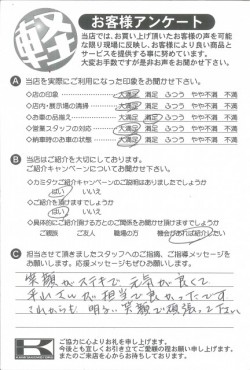 軽
お客様アンケート
当店では、お買い上げ頂いたお客様の声を可能
な限り現場に反映し、お客様により良い商品と
サービスを提供する事に努めています。
大変お手数ですが是非お声をお聞かせ下さい。
A 当店を実際にご利用になった印象をお聞かせ下さい。
◇店の印象 大満足 満足 ふつう やや不満 不満
◇店内・展示場の清掃 大満足 満足 ふつう やや不満 不満
◇お車の品揃え 大満足 満足 ふつう やや不満 不満
◇営業スタッフの対応 大満足 満足 ふつう やや不満 不満
◇納車時のお車の状態 大満足 満足 ふつう やや不満 不満
B 当店はご紹介を大切にしております。
ご紹介キャンペーンについてお聞かせ下さい。
◇カミタケご紹介キャンペーンのご説明はありましたでしょうか
はい いいえ
◇ご紹介を頂けますでしょうか
はい いいえ
◇具体的にご紹介頂ける方とのご関係をお聞かせ頂けますでしょうか
ご親族 ご友人 職場の方 機会があれば紹介したい
C 担当させて頂きましたスタッフへのご指摘、ご指導メッセージを
お願いします。応援メッセージもぜひお願いします。
笑顔がステキで 元気が良くて
さんが担当で良かったです
これからも 明るい笑顔で頑張って下さい
K
ご協力に心よりお礼を申し上げます。
今後とも宜しくお引き立てご愛顧の程お願い申し上げます。
またのご来店を心からお待ちしております。